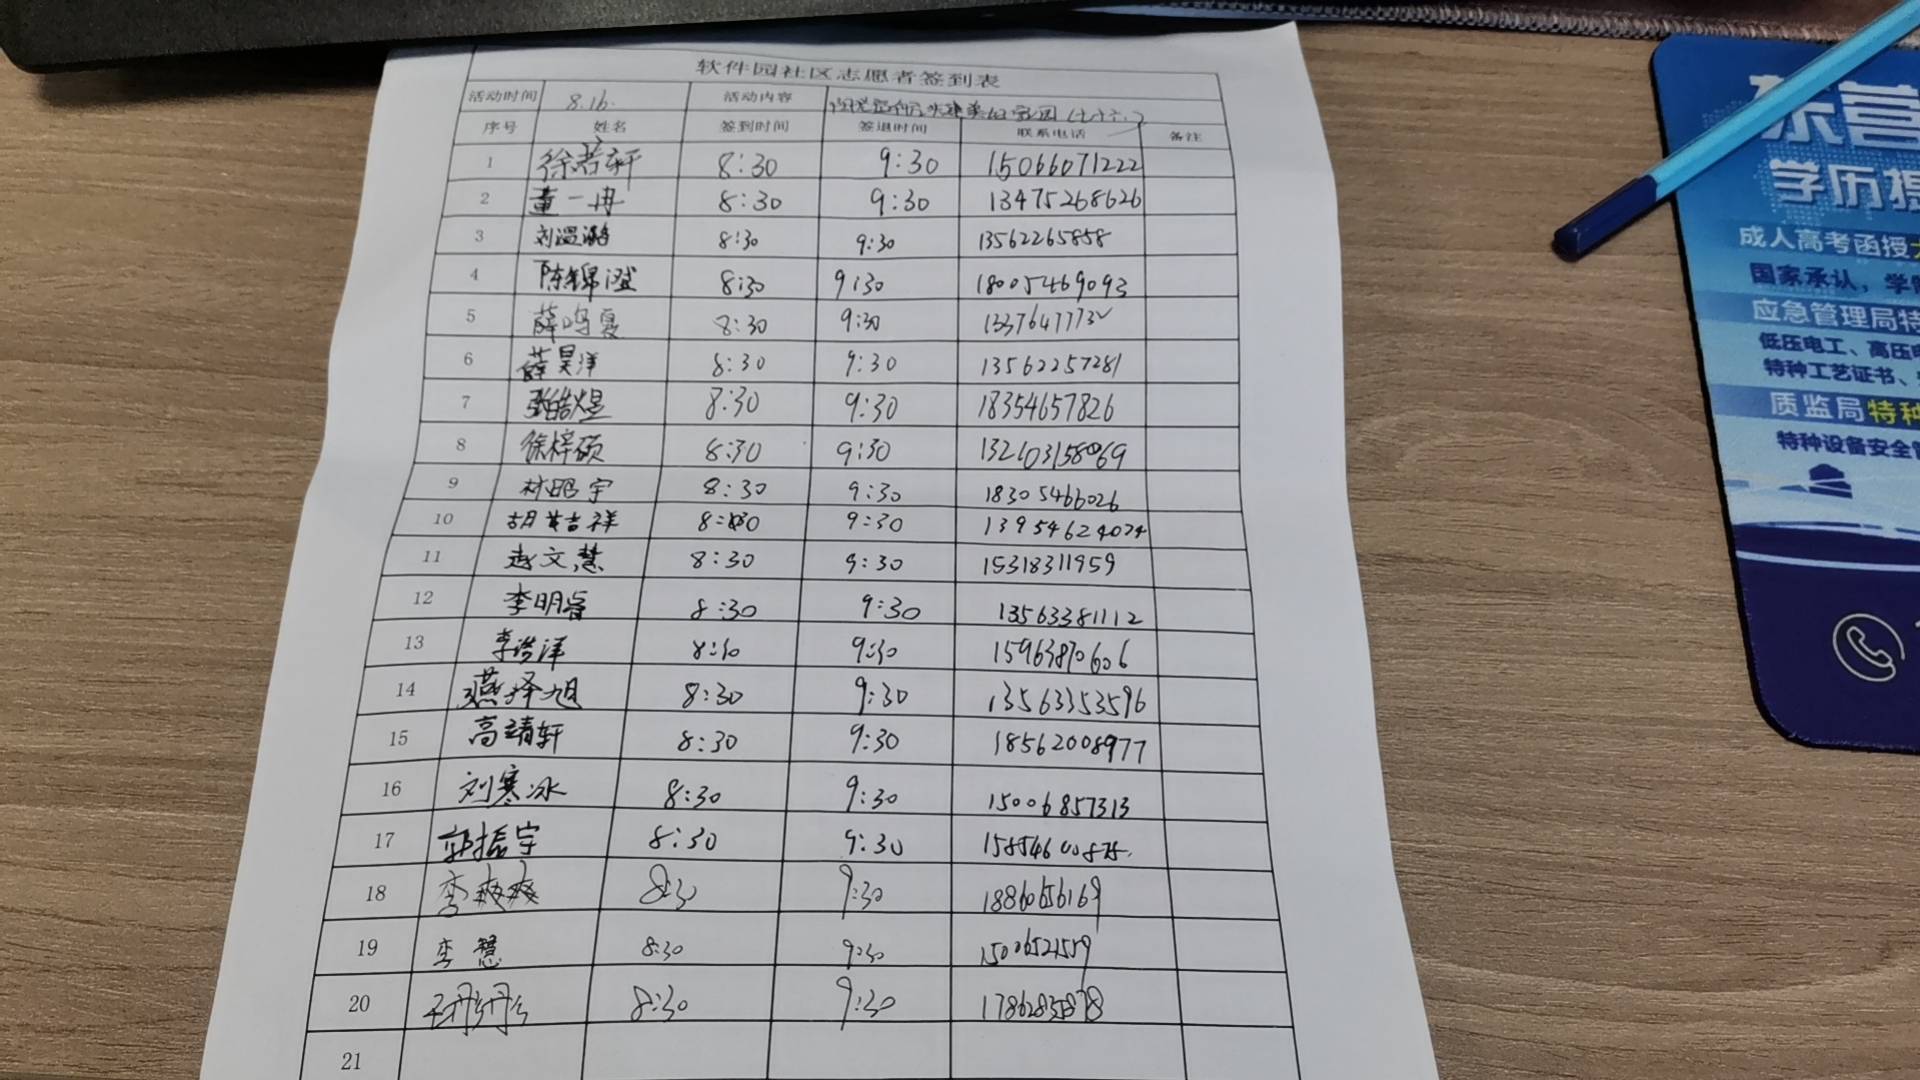 软件园社区志愿者签到表
活动时间 8.16. 活动内容
序号 姓名 签到时间 签退时间 联系电话 备注
1 徐若轩 8:30 9:30 15066071222
2 董一冉 8:30 9:30 13475268626
3 刘温潞 8:30 9:30 13562265858
4 陈锦澄 8:30 9:30 18005469093
5 薛鸣夏 8:30 9:30 13376477732
6 薛昊洋 8:30 9:30 13562257281
7 8:30 9:30 18354657826
8 徐梓硕 8:30 9:30
9 林昭宇 8:30 9:30 18305466026
10 胡黄吉祥 8:30 9:30 13954624074
11 赵文慧 8:30 9:30 15318311959
12 李明睿 8:30 9:30 13563381112
13 李浩泽 8:30 9:30 15963870606
14 燕择旭 8:30 9:30 13563353596
15 高靖轩 8:30 9:30 18562008977
16 刘寒冰 8:30 9:30 15006857313
17 郭振宇 8:30 9:30
18 李爽爽 8:30 9:30 18860656169
19 李慧 8:30 9:30 15006521559
20 8:30 9:30
21
东营
学历提
成人高考函授
国家承认,学
应急管理局特
低压电工、高压
特种工艺证书、
质监局特种
特种设备安全